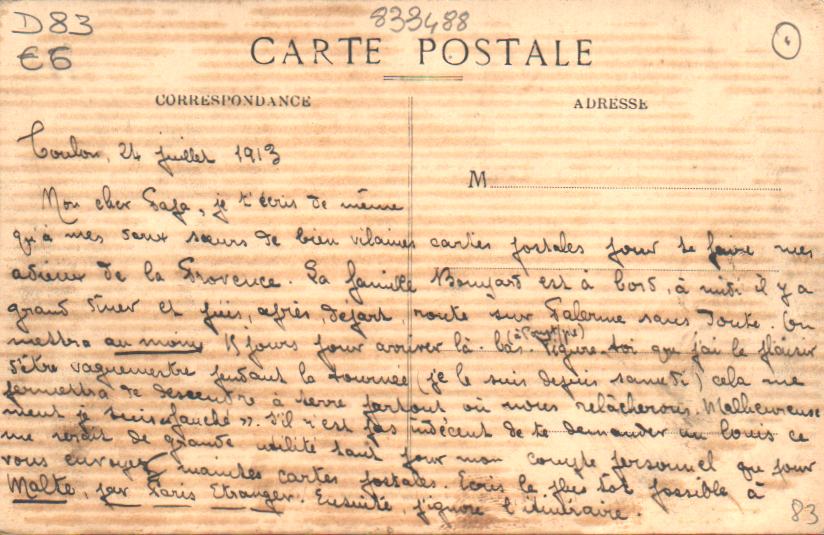 D83
€6
833488
CARTE POSTALE
CORRESPONDANCE
ADRESSE
M
Toulon, 24 juillet 1913
Mon cher Papa, je t'écris de même
qu'à mes deux sœurs de bien vilaines cartes postales pour te faire mes
adieux de la Provence. La famille est à bord, à midi il y a
grand diner et puis, après, départ, route sur Palerme sans doute. On
mettra au moins 15 jours pour arriver là-bas. Figure-toi que j'ai le plaisir
d'être vaguemestre pendant la tournée (je le suis depuis samedi) cela me
permettra de descendre à terre partout où nous relâcherons. Malheureuse
ment je suis "fauché". S'il n'est pas indécent de te demander un louis ce
me serait de grande utilité tant pour mon compte personnel que pour
vous envoyer maintes cartes postales. Ecris le plus tôt possible à
Malte, par Paris Etranger. Ensuite, j'ignore l'itinéraire.
83